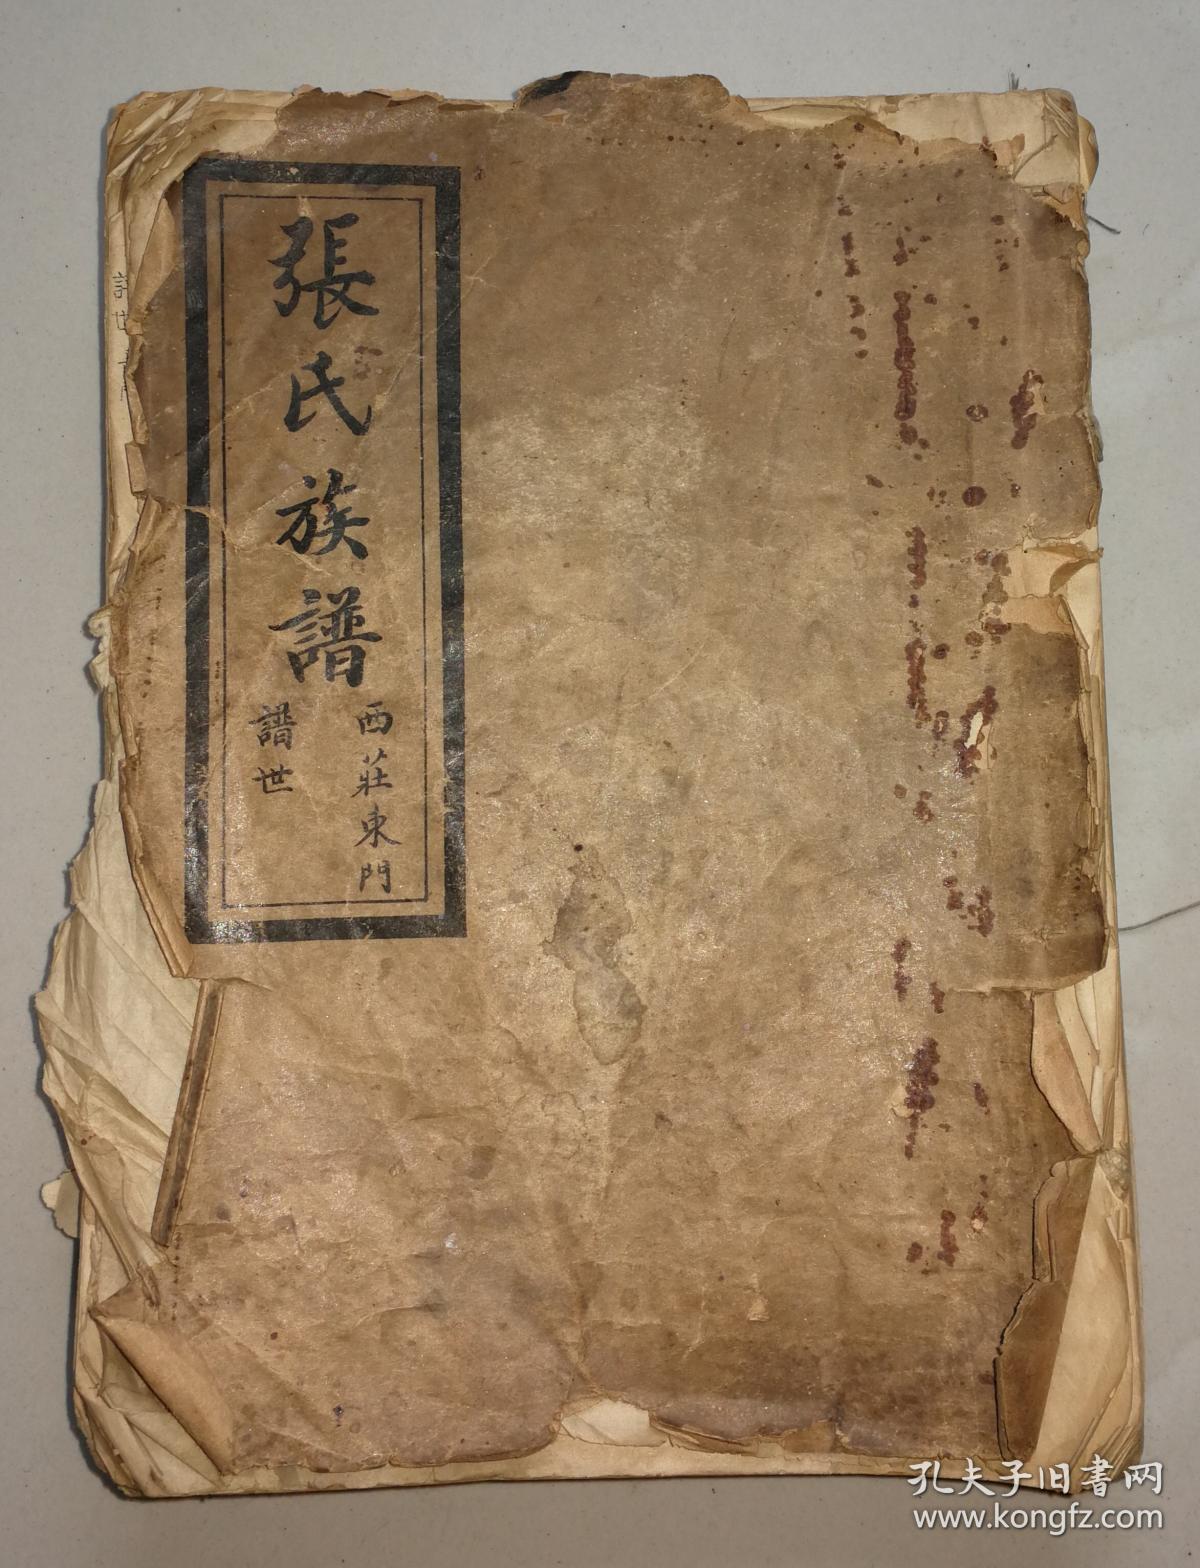 張氏族譜
西莊東門
譜世
孔夫子旧書网
www.kongfz.com